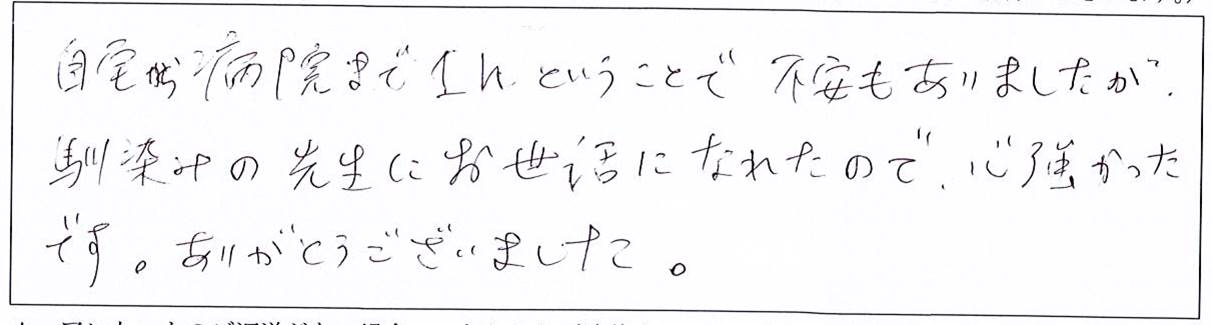 自宅から病院まで1h.ということで 不安もありましたが、
馴染みの先生にお世話になれたので、心強かった
です。ありがとうございました。